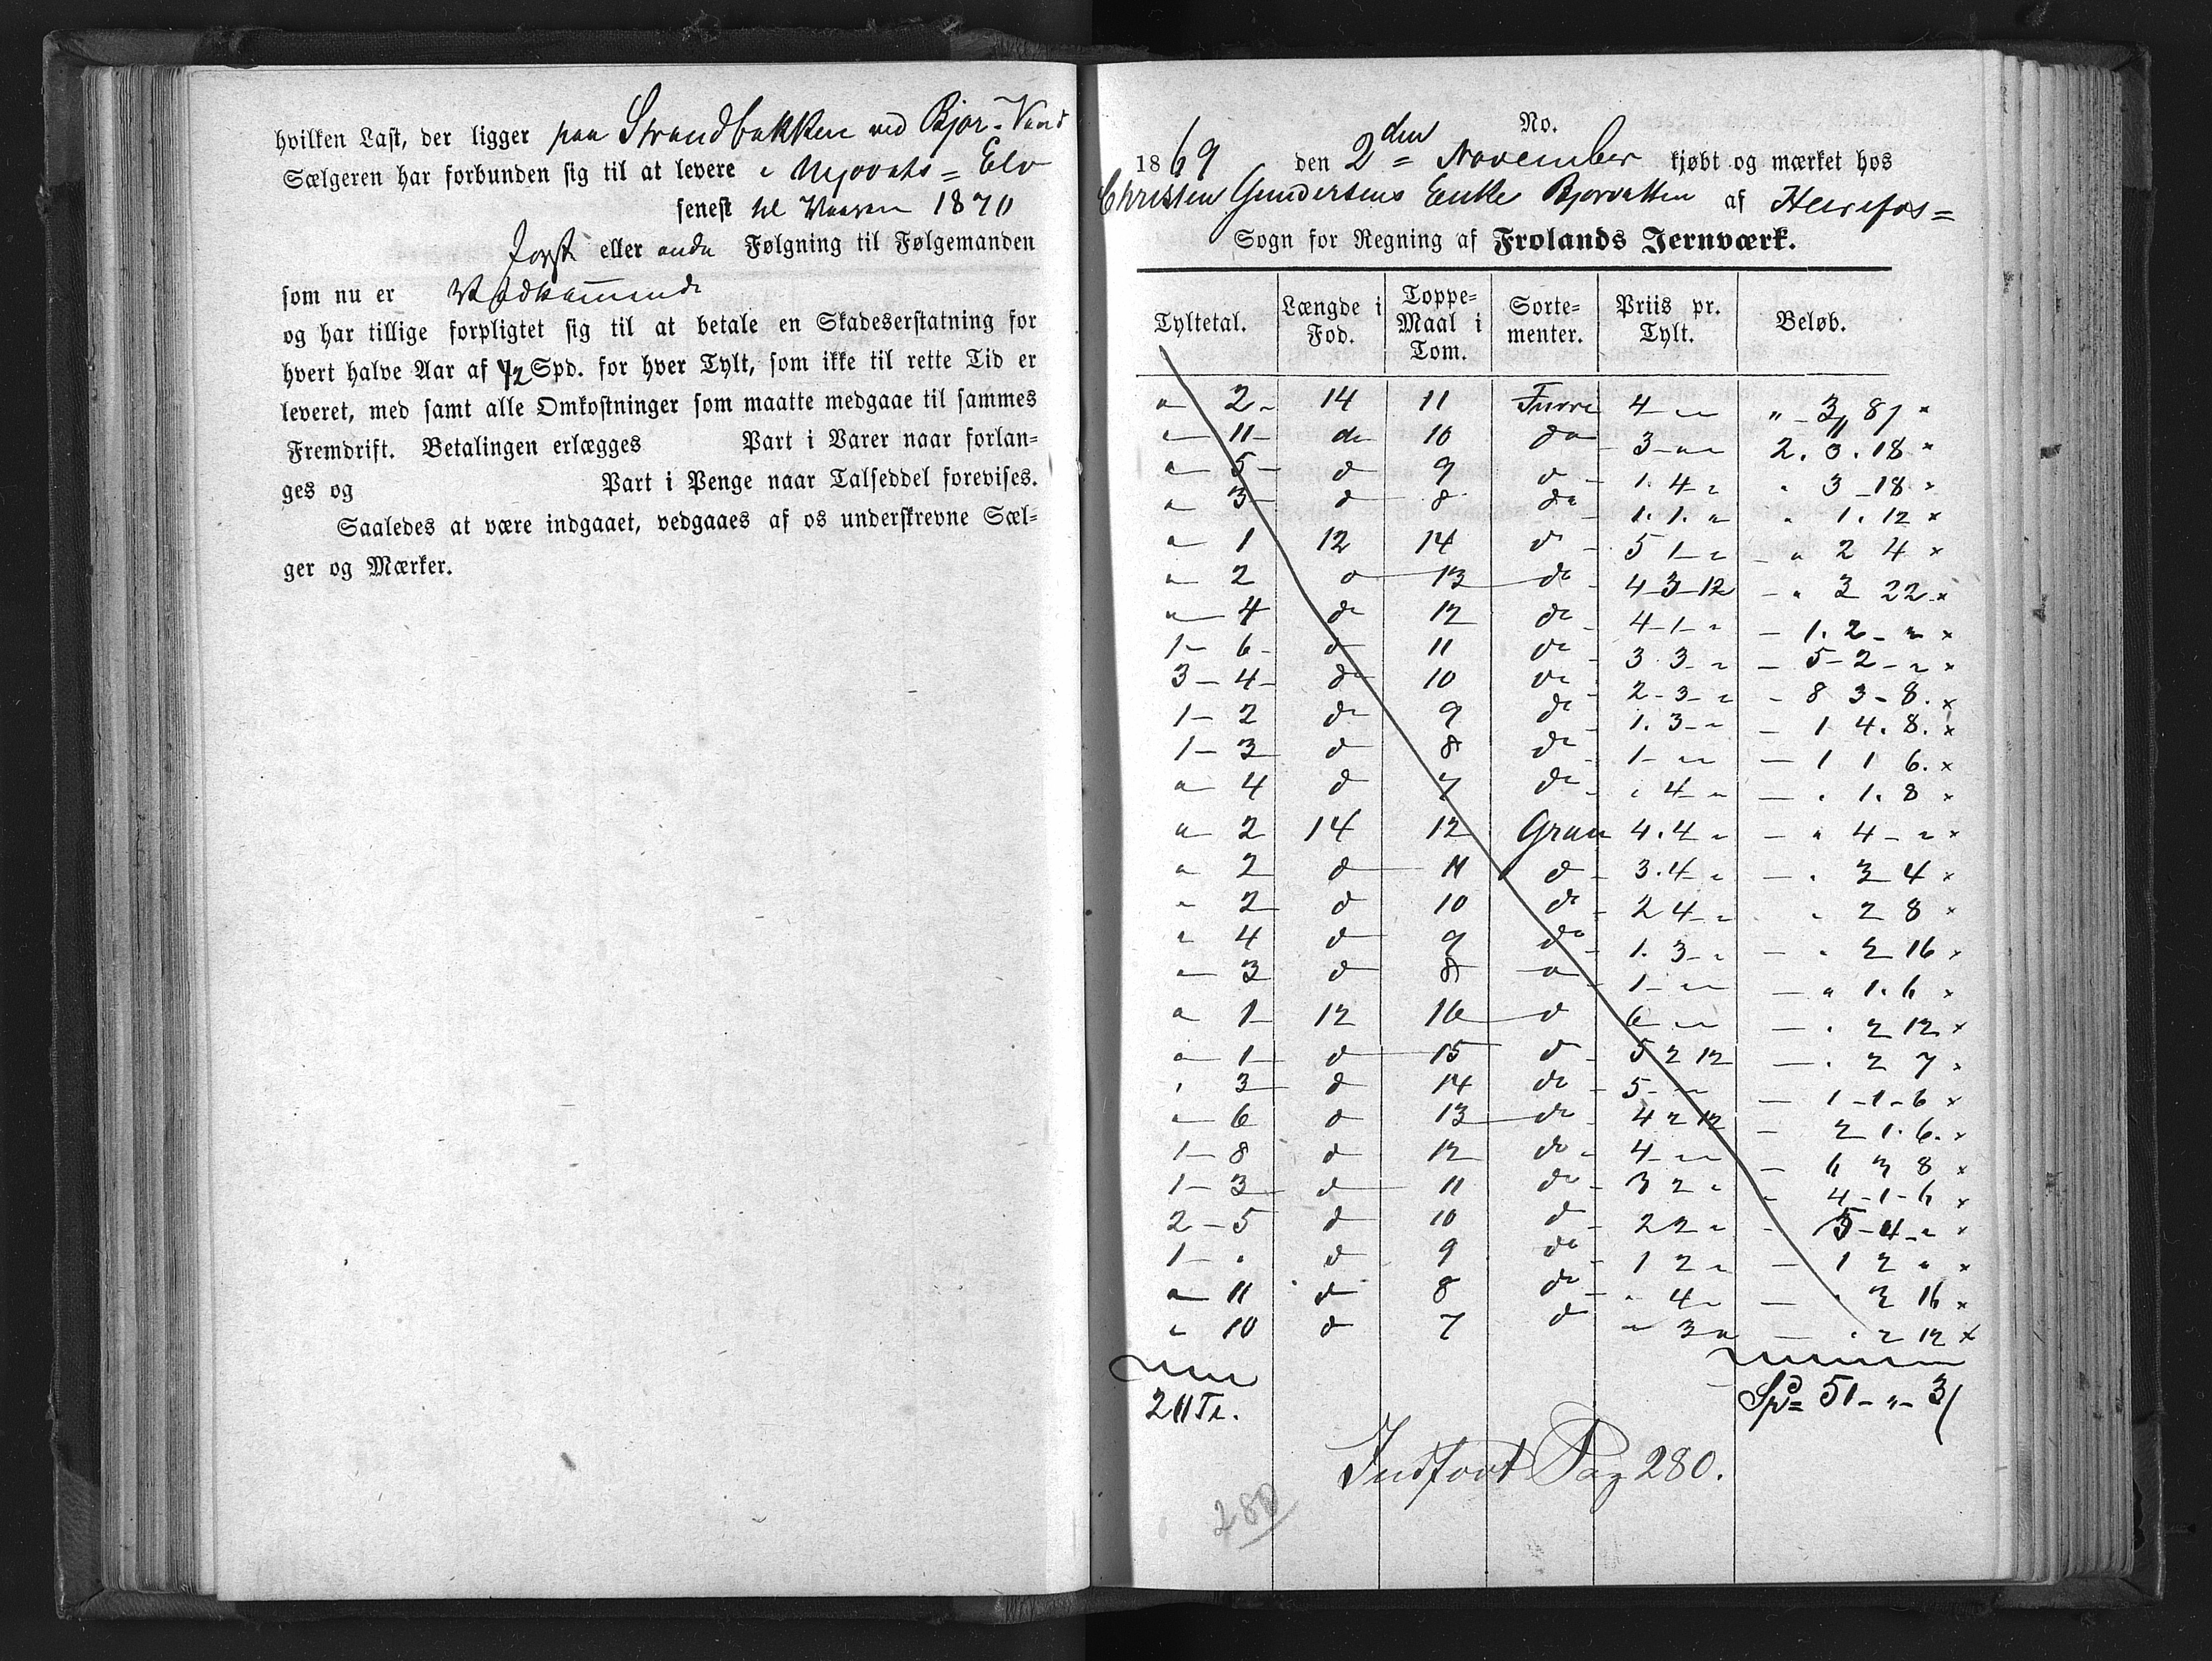 hvilken Last, der ligger paa Strandbakken ved Bjor-Vand
Sælgeren har forbunden sig til at levere i Uljovats = Elv
senest til Vaaren 1870
først eller anden Følgning til Følgemanden
som nu er Vedkommende
og har tillige forpligtet sig til at betale en Skadeserstatning for
hvert halve Aar af 1/2 Spd. for hver Tylt, som ikke til rette Tid er
leveret, med samt alle Omkostninger som maatte medgaae til sammes
Fremdrift. Betalingen erlægges Part i Varer naar forlan-
ges og Part i Penge naar Talseddel forevises.
Saaledes at være indgaaet, vedgaaes af os underskrevne Sæl-
ger og Mærker.
No.
1869 den 2den November kjøbt og mærket hos
Christen Gundersens Enke Bjorvatten af Herefos=
Sogn for Regning af Frolands Jernværk.
Tyltetal. Længde i Fod. Toppe-Maal i Tom. Sorte-menter. Priis pr. Tylt. Beløb.
" 2 - 14 11 Furre 4 - " " " - 3 " 8 / ×
" - 11 - do 10 do 3 - " " 2. 3. 18 ×
" 5 - d 9 d - 1. 4 - " " 3 - 18 ×
" 3 - d 8 do - 1. 1. " " 1. 12 ×
" 1 12 14 d - 5 1 - " - " 2 4 ×
" 2 d 13 do - 4 - 3 - 12 - " 3 22 ×
" 4 do 12 do - 4 - 1 - " - 1. 2 - " ×
1 - 6 - d 11 do - 3 3 - " - 5 - 2 - " ×
3 - 4 - do 10 do - 2 - 3 - " - 8 3 - 8. ×
1 - 2 do 9 do - 1. 3 - " - 1 4. 8. ×
1 - 3 d 8 do - 1 - " " - 1 1 6. ×
" 4 d 7 do - " 4 - " - " 1. 8 ×
" 2 14 12 Gran 4. 4 " - " 4 - " ×
" 2 d 11 d - 3. 4 - " - " 3 4 ×
" 2 d 10 do - 2 4 - " " 2 8 ×
" 4 d 9 do - 1. 3 - " - " 2 16 ×
" 3 d 8 d - 1 - " " - " 1. 6 ×
" 1 - 12 16 d 6 " " - " 2 12 ×
" 1 - d 15 d - 5 2 12 - " 2 7 ×
" 3 d 14 do - 5 - " " - 1 - 1 - 6 ×
" 6 d 13 do - 4 2 12 - 2 1. 6. ×
1 - 8 d 12 do - 4 - " " - 6 3 8 ×
1 - 3 d 11 do - 3 2 " - 4 - 1 - 6 ×
2 - 5 d 10 d - 2 2 " - 5 - 4 - " ×
1 - " d 9 do - 1 2 " - 1 2 " ×
" 11 d 8 do - " 4 " - " 3 16 ×
" 10 d 7 d " 3 " - " 2 12 ×
20 11 Ti. Spd = 51 - " - 3 /
Indført Pag 280.
280